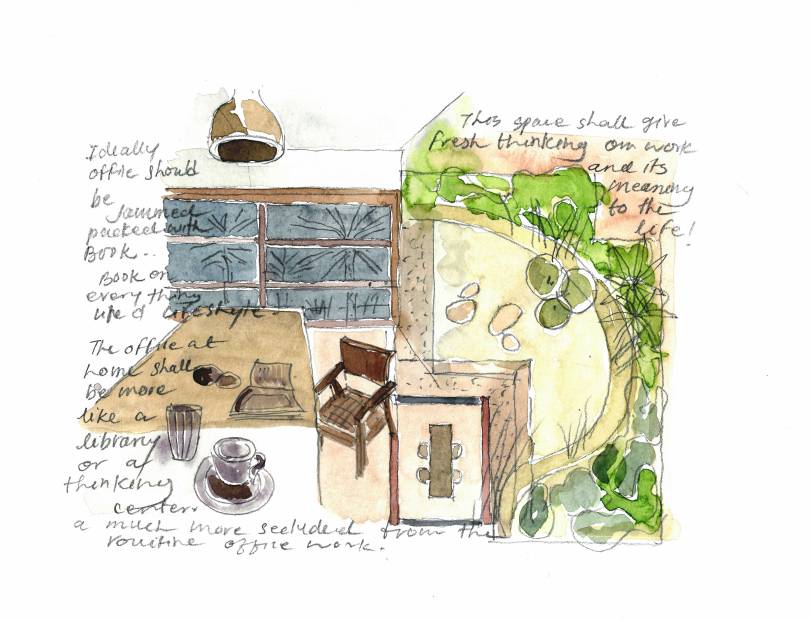 Ideally
office should
be
Jammed
packed with
BOOK..
Book on
every thing
life & lifestyle.
The office at
home shall
be more
like a
library
or a
thinking
center.
a much more secluded from the
rouitine office work.
This space shall give
fresh thinking on work
and its
meaning
to the
life!